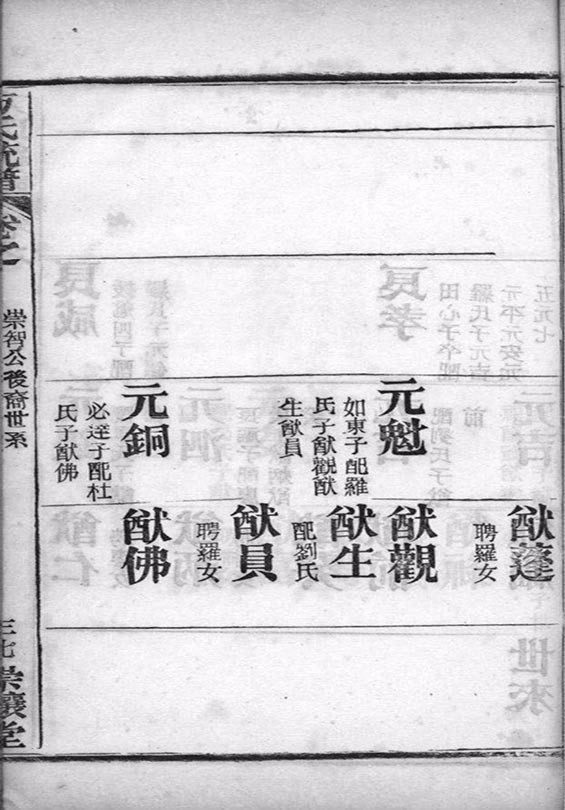 猷蓬
聘羅女
元魁
如東子配羅
氏子猷觀猷
生猷員
猷觀
猷生
配劉氏
猷員
聘羅女
元銅
必達子配杜
氏子猷佛
猷佛
崇智公後裔世系